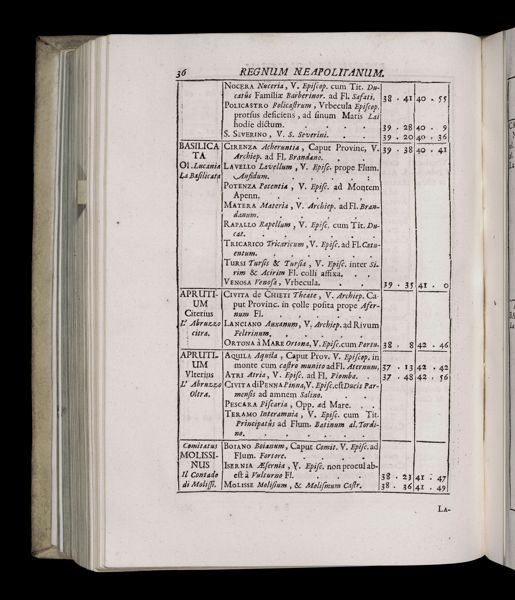 36 REGNUM NEAPOLITANUM.
NOCERA Nuceria, V. Episcop. cum Tit. Du-
catûs Familiæ Barberinor. ad Fl. Safati. 38 . 41 40 . 55
POLICASTRO Policastrum, Vrbecula Episcop.
prorsus deficiens, ad sinum Maris Lai
hodie dictum. 39 . 28 40 . 9
S. SIVERINO, V. S. Severini. 39 . 20 40 . 36
BASILICA
TA
Ol. Lucania
La Basilicata
CIRENZA Acheruntia, Caput Provinc, V. 39 . 38 40 . 41
Archiep. ad Fl. Brandano.
LAVELLO Lavellum, V. Episc. prope Flum.
Aufidum.
POTENZA Potentia, V. Episc. ad Montem
Apenn.
MATERA Materia, V. Archiep. ad Fl. Bran-
danum.
RAPALLO Rapellum, V. Episc. cum Tit. Du-
cat.
TRICARICO Tricaricum, V. Episc. ad Fl. Casu-
entum.
TURSI Tursis & Tursia, V. Episc. inter Si-
rim & Acirim Fl. colli affixa.
VENOSA Venosa, Vrbecula. 39 . 35 41 . 0
APRUTI-
UM
Citerius
L' Abruzzo
citra.
CIVITA de CHIETI Theate, V. Archiep. Ca-
put Provinc. in colle posita prope Ater-
num Fl.
LANCIANO Auxanum, V. Archiep. ad Rivum
Feltrinum.
ORTONA à MARE Ortona, V. Episc. cum Portu. 38 . 8 42 . 46
APRUTI-
UM
Vlterius
L' Abruzzo
Oltra.
AQUILA Aquila, Caput Prov. V. Episcop. in
monte cum castro munito ad Fl. Aternum, 37 . 13 42 . 42
ATRI Atria, V. Episc. ad Fl. Piomba. 37 . 48 42 . 56
CIVITA di PENNA Pinna, V. Episc. est Ducis Par-
mensis ad amnem Salino.
PESCARA Piscaria, Opp. ad Mare.
TERAMO Interamnia, V. Episc. cum Tit.
Principatûs ad Flum. Batinum al. Tordi-
no.
Comitatus
MOLISSI-
NUS
Il Contado
di Molissi.
BOIANO Boianum, Caput Comit. V. Episc. ad
Flum. Fortore.
ISERNIA Æsernia, V. Episc. non procul ab-
est à Vulturno Fl. 38 . 23 41 . 47
MOLISSE Molisium, & Molisinum Castr. 38 . 36 41 . 49
LA-